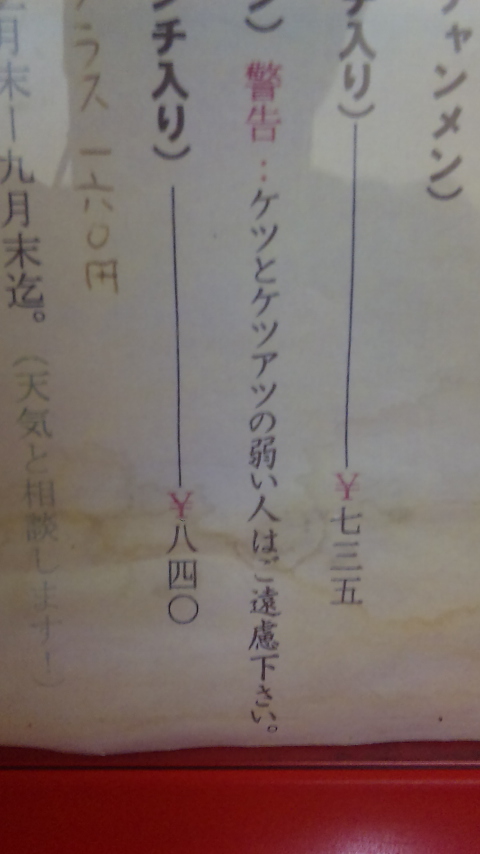 チャンメン)
チ入り) ¥七三五
ン) 警告:ケツとケツアツの弱い人はご遠慮下さい。
ンチ入り) ¥八四〇
ラス 一六〇円
月末ー九月末迄。(天気と相談します!)